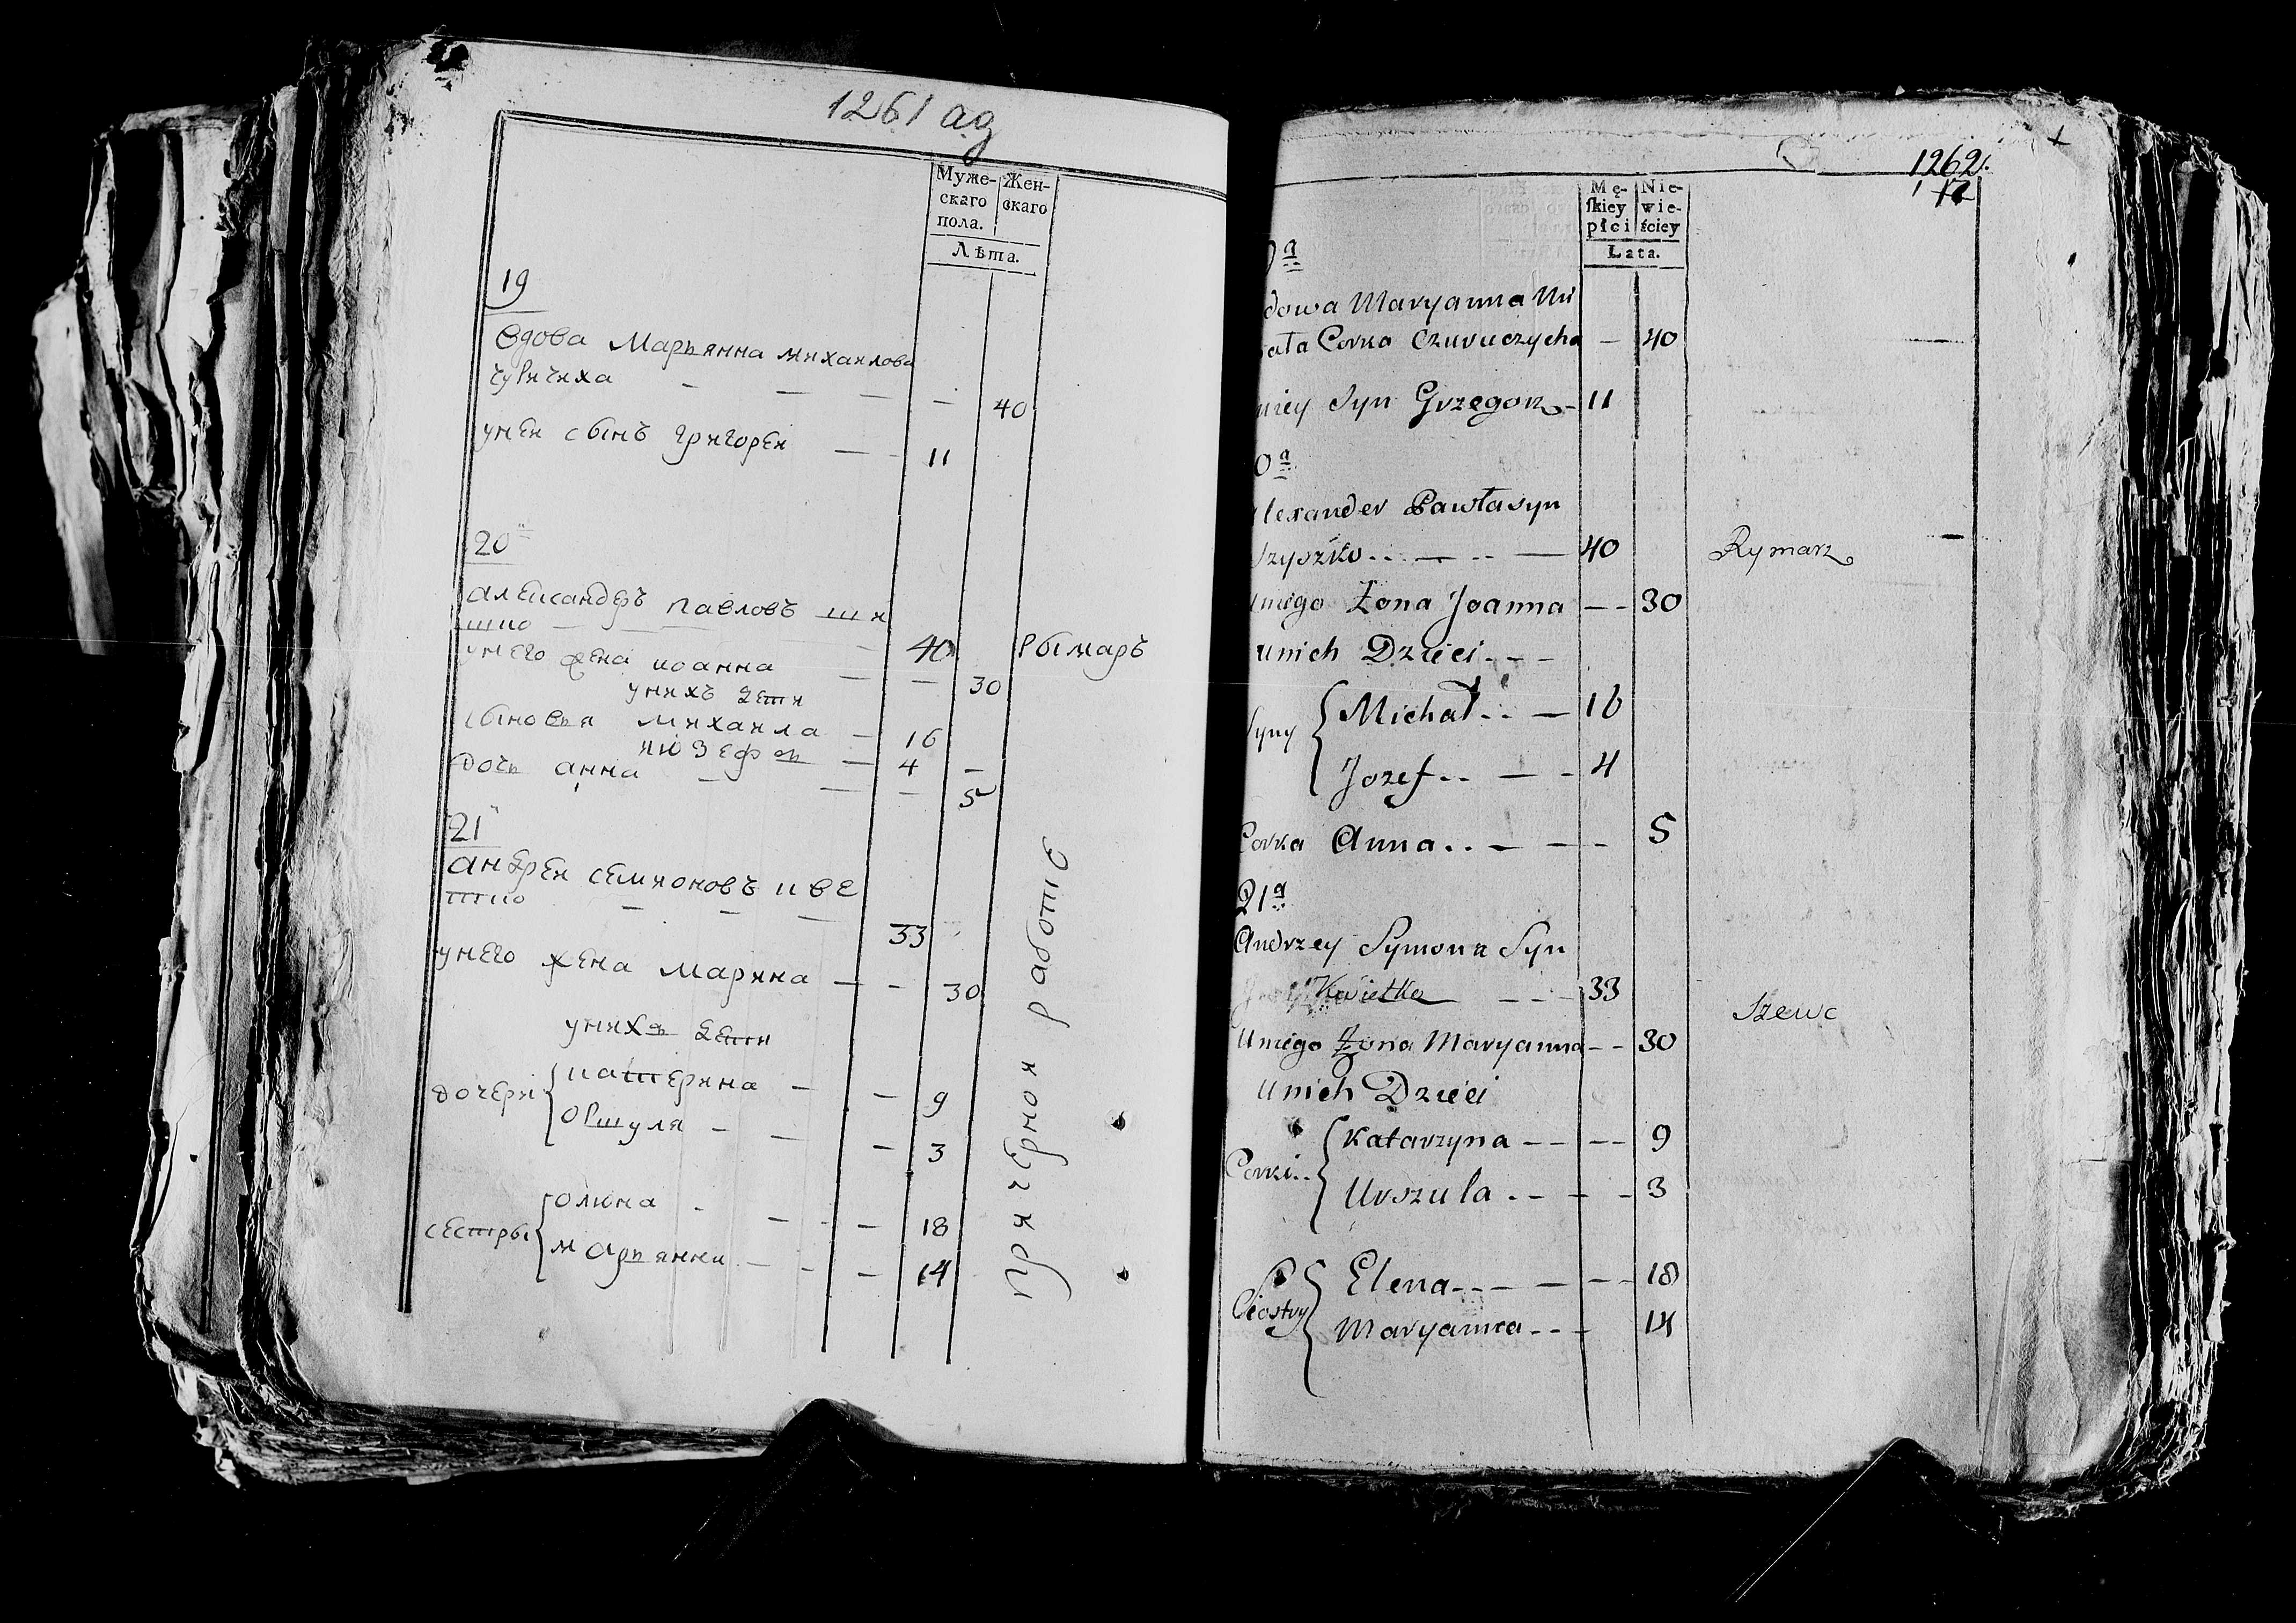 1261 ад
Муже- Жен-
скаго скаго
пола.
Лѣта.
19
вдова Марьянна михаилова
чурычиха - - - - 40
унеи сынъ григореи - - 11
20
александръ павловъ ши
шко - - 40 Рымаръ
унего жена иоанна - - 30
унихъ дети
сыновья михаила - 16
иозефъ - 4 -
дочь анна - - - 5
21
андреи семионовъ кве
тко - - - 33
унего жена Марина - - 30
унихъ дети
дочери катерина - - 9
оршуля - - - 3
сестры олиона - - - - 18
марьянна - - - 14
при чернои работе
1262.
12
Mę- Nie-
ſkiey wie-
płci ściey
Lata.
9a
dowa Maryanna Mi
ała Corka Czuruczycha - 40
niey Syn Grzegorz - 11
0a
lexander Pawła syn
Szyszko.. - .. - 40 Rymarz
unego Żona Joanna - - 30
unich Dzieci - - -
Syny Michał.. - 16
Jozef.. - - 4
Corka Anna.. - - - 5
21a
Andrzey Symona Syn
Kwietka - - - 33 Szewc
Uniego Żona Maryanna - - 30
Unich Dzieci
Corki.. Katarzyna - - - - 9
Urszula.. - - - 3
Ciostry Elena - - - - - 18
Maryanna - - - 14